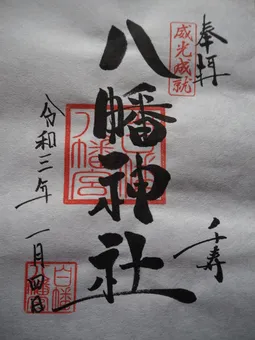 奉拝
威光成就
八幡神社
八幡宮
令和三年
一月四日